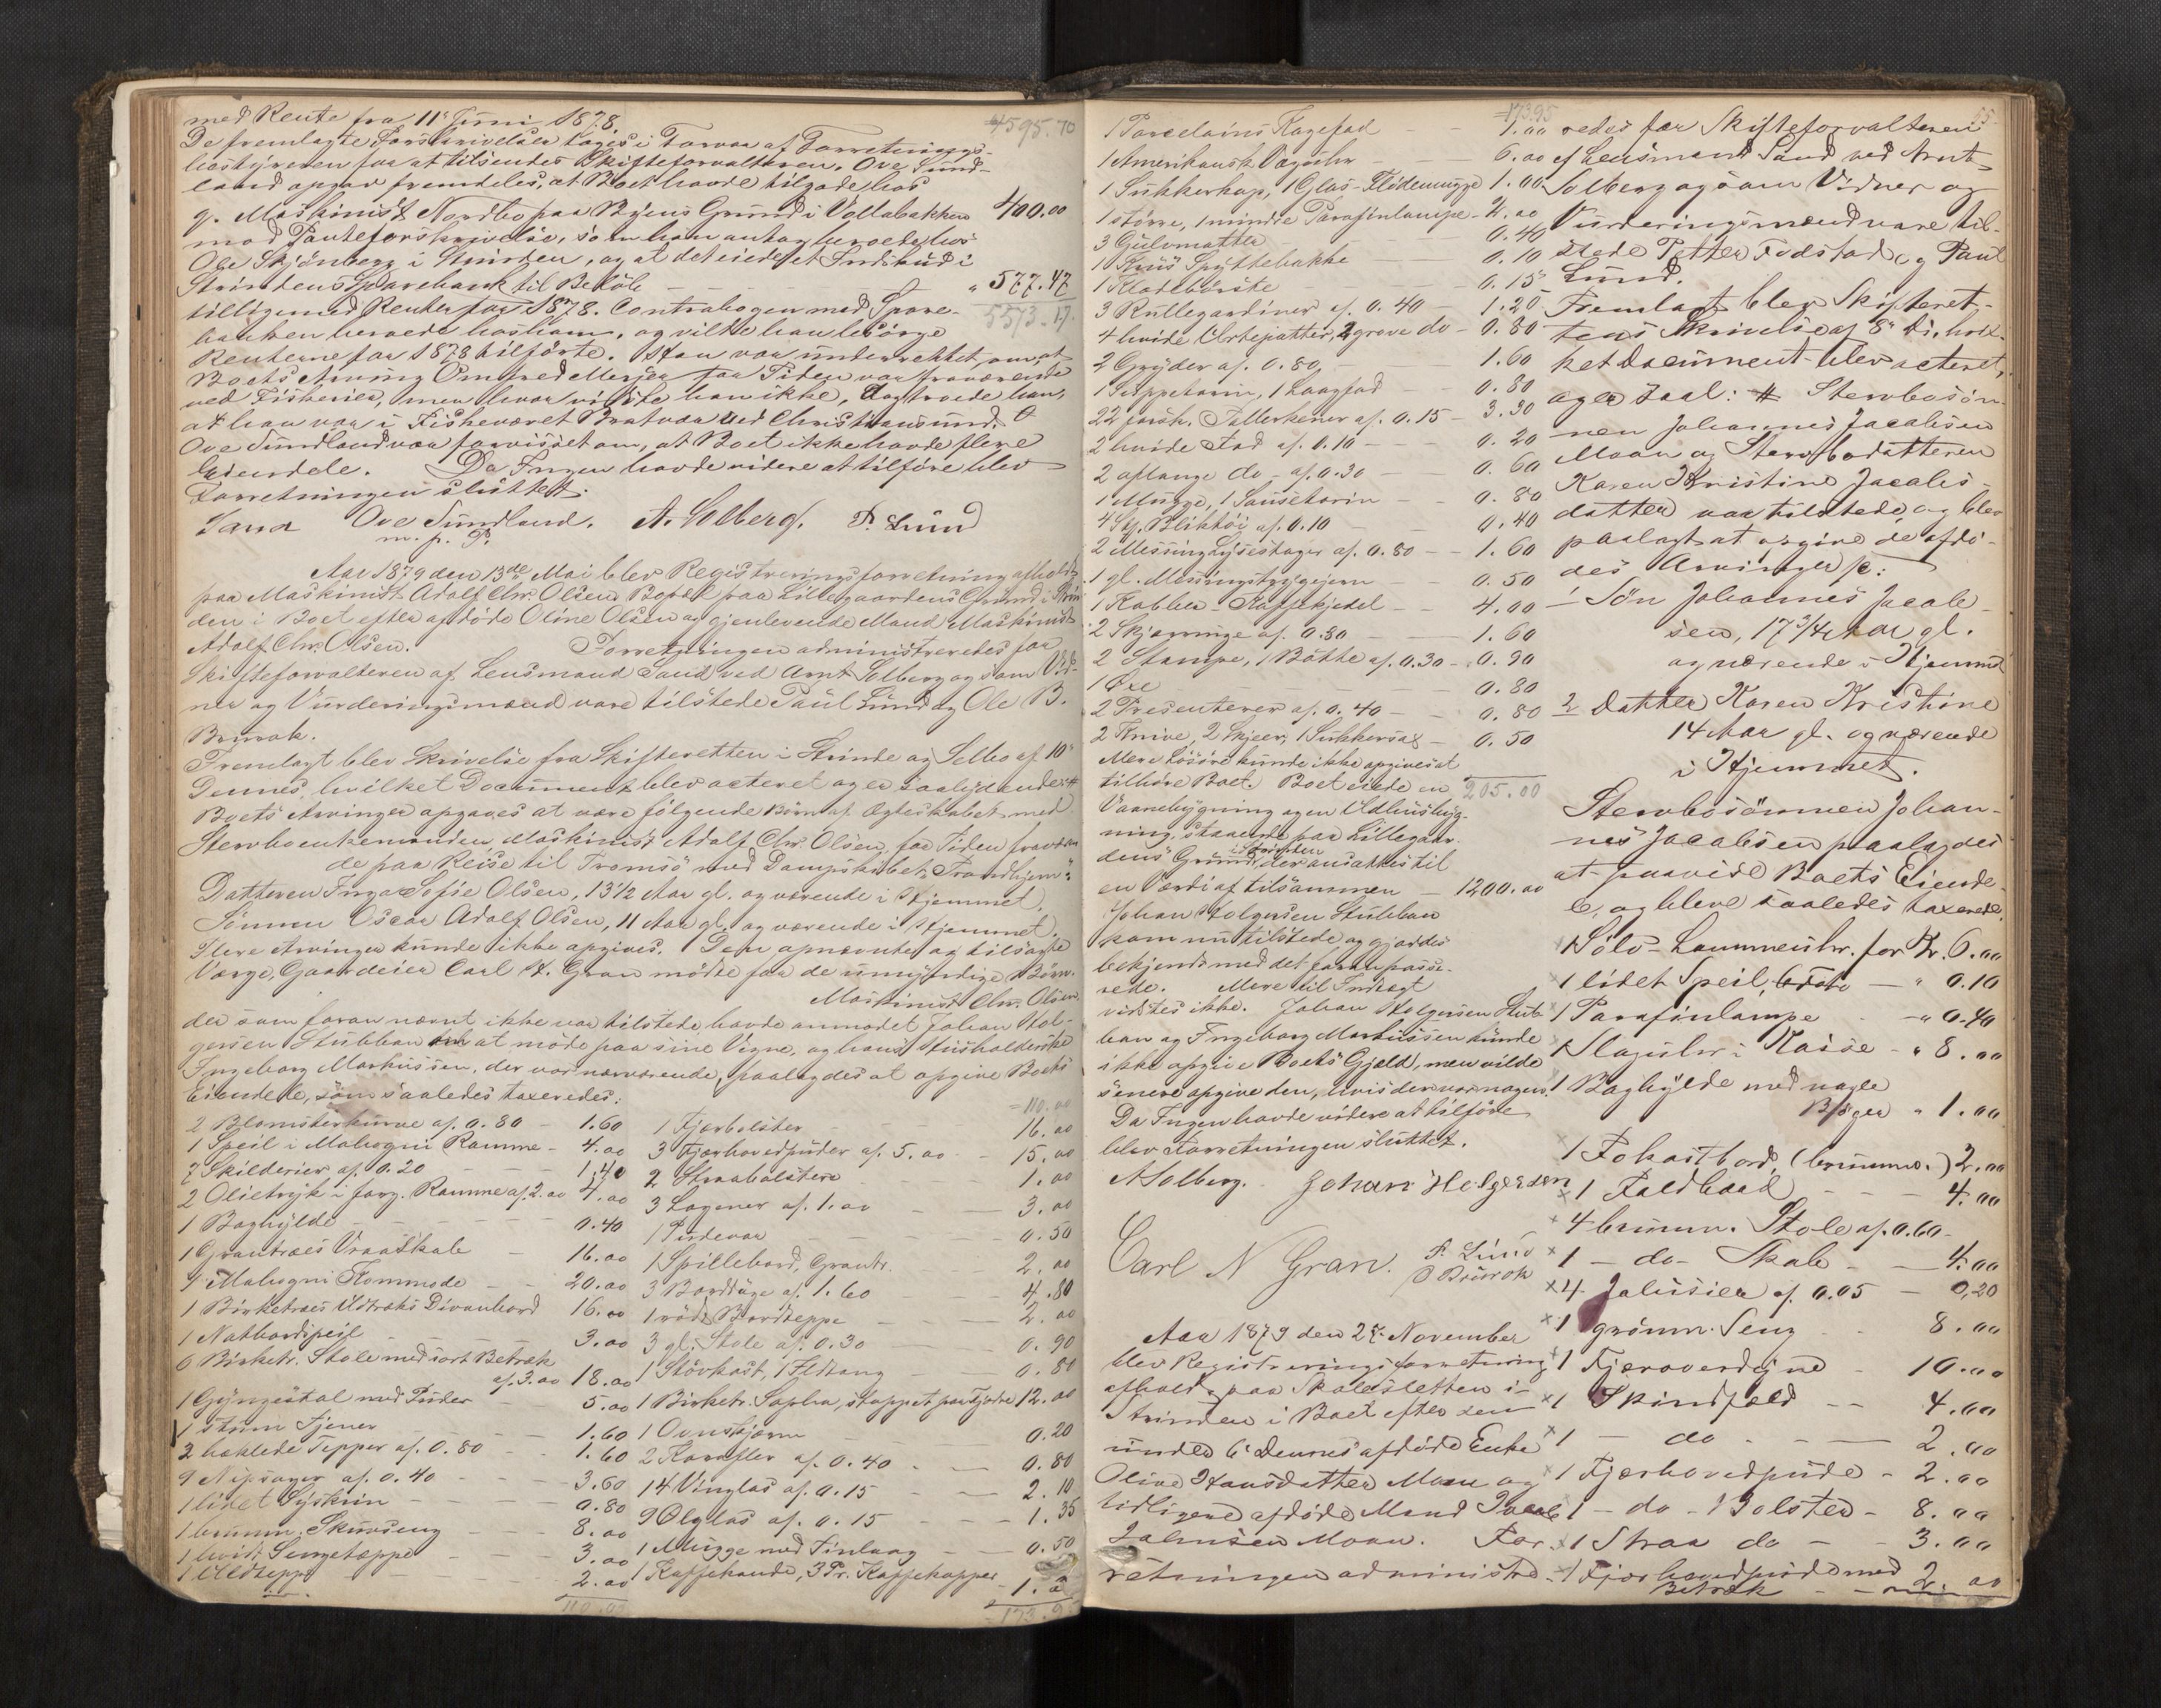 med Rente fra 11' Juni 1878. 4595.70
De fremlagte Forskrivelser toges i Forvar af Forretnings-
bestyreren for at tilsendes Skifteforvalteren. Ove Sund-
land opgav fremdeles, at Boet havde tilgode hos
q. Maskinist Nordbo paa Byens Grund i Vollabakken 400.00
mod Panteforskrivelse, som han antog beroede hos
Ole Skjönberg i Strinden, og at det eiede et Indskud i
Strindens Sparebank til Belöb " 577.47
tilligemed Renter for 1878. Contrabogen med Spare- 5573.17
banken beroede hos ham, og vilde han besörge
Renterne for 1878 tilförte. Han var underrettet om, at
Boets Arving Omfred Meyer for Tiden var fraværende
ved Fiskerier, men hvor vidste han ikke, dog troede han,
at han var i Fiskeværet Bratvær ved Christiansund.
Ove Sundland var forvisset om, at Boet ikke havde flere
Eiendele. Da Ingen havde videre at tilföre blev
Forretningen sluttet.
Sand Ove Sundland. A. Solberg. P. Lund
m. p. P.
Aar 1879 den 13de Mai blev Registreringsforretning afholdt
paa Maskinist Adolf Chr. Olsens Bopæl paa Lillegaardens Grund i Strin
den i Boet efter afdöde Oline Olsen og gjenlevende Mand Maskinist
Adolf Chr. Olsen. Forretningen administreredes for
Skifteforvalteren af Lensmand Sand ved Arnt Solberg og som Vid-
ner og Vurderingsmænd vare tilstede Paul Lund og Ole B.
Brurok.
Fremlagt blev Skrivelse fra Skifteretten i Strinde og Selbo af 10'
Dennes, hvilket Document blev acteret og er saalydende: #
Boets Arvinger opgaves at være fölgende Börn af Ægteskabet med
Stervboenkemanden, Maskinist Adolf Chr. Olsen, for Tiden fraværen
de paa Reise til Tromsö med Dampskibet "Trondhjem":
Datteren Inga Sofie Olsen, 13 1/2 Aar gl. og værende i Hjemmet.
Sönnen Oscar Adolf Olsen, 11 Aar gl. og værende i Hjemmet.
Flere Arvinger kunde ikke opgives. Den opnævnte og tilsagte
Værge, Gaardeier Carl N. Gran mödte for de umyndige Börn.
Maskinist Chr. Olsen
der som foran nævnt ikke var tilstede havde anmodet Johan Hol-
gersen Stubban om at möde paa sine Vegne, og hans Husholderske
Ingeborg Markussen, der var nærværende, paalagdes at opgive Boets
Eiendele, som saaledes taxeredes:
2 Blomsterkurve af. 0.80 - 1.60
1 Speil i Mahogni Ramme - 4.00
7 Skilderier af. 0.20 - 1.40
2 Olietryk i forg. Ramme af. 2.00 4.00
1 Baghylde 0.40
1 Grantræes Vraaskab 16.00
1 Mahogni Kommode 20.00
1 Birketræes Udtræks Divanbord 16.00
1 Natbordspeil 3.00
6 Birketr. Stole med sort Betræk
af. 3.00 18.00
1 Gyngestol med Puder 5.00
1 stum Tjener 1.60
2 heklede Tepper af. 0.80 1.60
9 Nipsager af. 0.40 3.60
1 lidet Syskrin 0.80
1 brunm. Skuvseng 8.00
1 hvidt Sengetæppe 3.00
1 Uldteppe 2.00
110.00
110.00
1 Fjærbolster 16.00
3 Fjærhovedpuder af. 5.00 15.00
2 Straabolstere 1.00
3 Lagener af. 1.00 3.00
1 Pudevar 0.50
1 Spillebord, Grantr. 2.00
3 Bordduge af. 1.60 4.80
1 rödt Bordteppe 2.00
3 gl. Stole af. 0.30 0.90
1 Stövkost, 1 Ildtang 0.80
1 Birketr. Sopha, stoppet paa Fjedre 12.00
1 Ovnskjærm 0.20
2 Karafler af. 0.40 0.80
14 Vinglas af. 0.15 2.10
9 Ölglas af. 0.15 1.35
1 Mugge med Tinlaag 0.50
1 Kaffekande, 3 Pr. Kaffekopper 1.2
173.95
173.95
1 Porcelains Kagefad 1.00
1 Amerikansk Væguhr 6.00
1 Sukkerkop, 1 Glas-Flödemugge 1.00
1 större, 1 mindre Parafinlampe 2.00
3 Gulvmatter 0.40
1 Spyttebakke 0.10
1 Klædebörste 0.15
3 Rullegardiner af. 0.40 1.20
4 hvide Urtepotter, 2 grove do 0.80
2 Gryder af. 0.80 1.60
1 Suppeterin, 1 Laagfad 0.80
22 forsk. Tallerkener af. 0.15 - 3.30
2 hvide Fad af. 0.10 0.20
2 aflange do af. 0.30 0.60
1 Mugge, 1 Sauseterin 0.80
4 St. Bliktöi af. 0.10 0.40
2 Messing Lysestager af. 0.80 - 1.60
1 gl. Messingstrygejern 0.50
1 Kobber-Kaffekjedel 4.00
2 Skjærringe af. 0.80 1.60
2 Stampe, 1 Bötte af. 0.30 0.90
1 Öxe 0.80
2 Presenterer af. 0.40 0.80
2 Knive, 2 Skjeer, 1 Sukkersax 0.50
Mere Lösöre kunde ikke opgives at
tilhöre Boet. Boet eiede en 205.00
Vaanebygning og en Udhusbyg-
ning, staaende paa Lillegaar-
dens Grund i Strinden, der ansattes til
en Værdi af tilsammen - 1200.00
Johan Holgersen Stubban
kom nu tilstede, og gjordes
bekjendt med det foran passe-
rede. Mere til Indtægt
vidstes ikke. Johan Holgersen Stub-
ban og Ingeborg Markussen kunde
ikke opgive Boets Gjæld, men vilde
senere opgive den, hvis der var nogen.
Da Ingen havde videre at tilföre
blev Forretningen sluttet.
A Solberg. Johan Holgersen
Carl N Gran. P. Lund
O Brurok
Aar 1879 den 27. November
blev Registreringsforretning
afholdt paa Skolesletten i
Strinden i Boet efter den
under 6' Dennes afdöde Enke
Olive Hansdatter Moan og
tidligere afdöde Mand Jacob
Johnsen Moan. For-
retningen administre-
55
redes for Skifteforvalteren
af Lensmand Sand ved Arnt
Solberg og som Vidner og
Vurderingsmænd vare til-
stede Petter Fodstad og Paul
Lund.
Fremlagt blev Skifteret-
tens Skrivelse af 8' ds., hvil-
ket Document blev acteret,
og er saal: # Stervbosön-
nen Johannes Jacobsen
Moan og Stervbodatteren
Karen Kristine Jacobs-
datter var tilstede, og blev
paalagt at opgive de afdö-
des Arvinger sc:
1 Sön Johannes Jacob-
sen, 17 3/4 Aar gl.
og værende i Hjemmet
2 Datter Karen Kristine
14 Aar gl. og værende
i Hjemmet.
Stervbosönnen Johan-
nes Jacobsen paalagdes
at paavise Boets Eiende-
le, og bleve saaledes taxerede:
1 Sölv-Lommeuhr. for Kr. 6.00
1 lidet Speil, " 0.10
1 Parafinlampe " 0.40
1 Slaguhr i Kasse " 8.00
1 Baghylde med nogle
Böger " 1.00
1 Fokostbord (brunm.) 2.00
1 Foldbord 4.00
4 brunm. Stole af. 0.60
1 - do - Skab 4.00
4 Jalusier af. 0.05 0.20
1 grönm. Seng 8.00
1 Fjæroverdyne 10.00
1 Skindfeld 4.00
1 do 2.00
1 Fjærhovedpude 2.00
1 - do - Bolster 8.00
1 Straa do 3.00
1 Fjærhovedpude med
Betræk 2.00